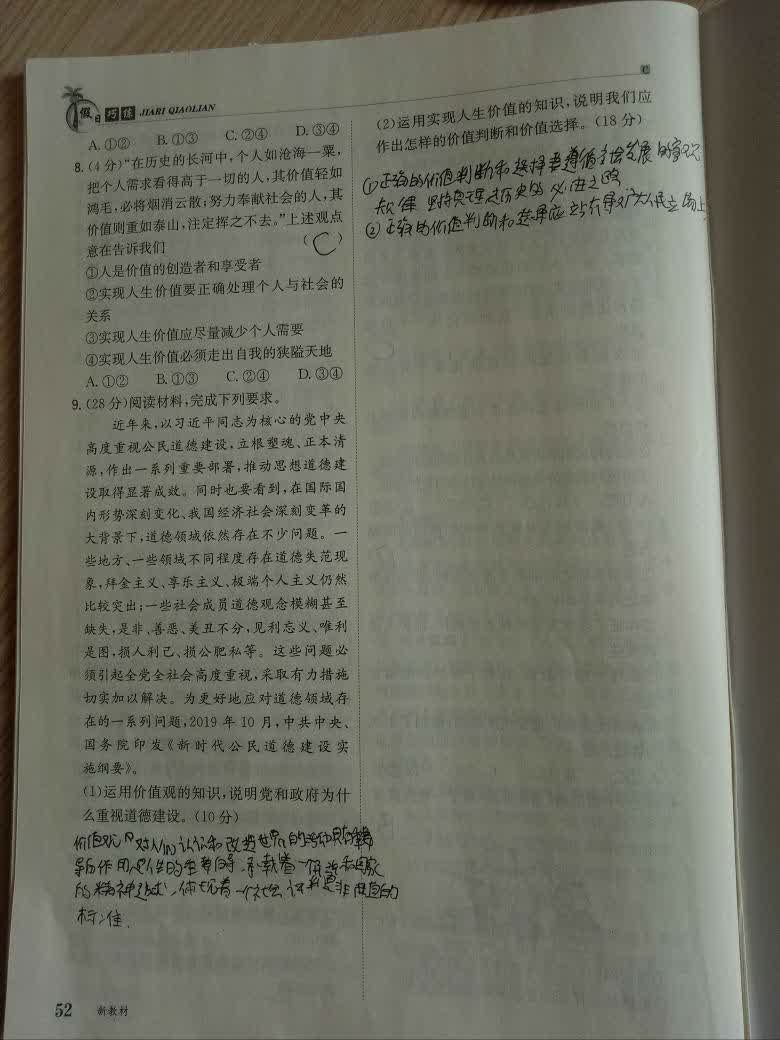 假日巧练 JIARI QIAOLIAN
C
A.①② B.①③ C.②④ D.③④
8.(4分)“在历史的长河中,个人如沧海一粟,
把个人需求看得高于一切的人,其价值轻如
鸿毛,必将烟消云散;努力奉献社会的人,其
价值则重如泰山,注定挥之不去。”上述观点
意在告诉我们 (C)
①人是价值的创造者和享受者
②实现人生价值要正确处理个人与社会的
关系
③实现人生价值应尽量减少个人需要
④实现人生价值必须走出自我的狭隘天地
A.①② B.①③ C.②④ D.③④
9.(28分)阅读材料,完成下列要求。
近年来,以习近平同志为核心的党中央
高度重视公民道德建设,立根塑魂、正本清
源,作出一系列重要部署,推动思想道德建
设取得显著成效。同时也要看到,在国际国
内形势深刻变化、我国经济社会深刻变革的
大背景下,道德领域依然存在不少问题。一
些地方、一些领域不同程度存在道德失范现
象,拜金主义、享乐主义、极端个人主义仍然
比较突出;一些社会成员道德观念模糊甚至
缺失,是非、善恶、美丑不分,见利忘义、唯利
是图,损人利己、损公肥私等。这些问题必
须引起全党全社会高度重视,采取有力措施
切实加以解决。为更好地应对道德领域存
在的一系列问题,2019年10月,中共中央、
国务院印发《新时代公民道德建设实
施纲要》。
(1)运用价值观的知识,说明党和政府为什
么重视道德建设。(10分)
价值观 对人们认识和改造世界的活动具有重要
导向作用 的重要向导.承载着一个 和国家
的精神追求,体现着一个社会评判是非曲直的
标准.
(2)运用实现人生价值的知识,说明我们应
作出怎样的价值判断和价值选择。(18分)
①正确的价值判断和选择要遵循社会发展的客观
规律 坚持真理是历史的必由之路
②正确的价值判断和选择应 站在最广大人民立场上
52 新教材